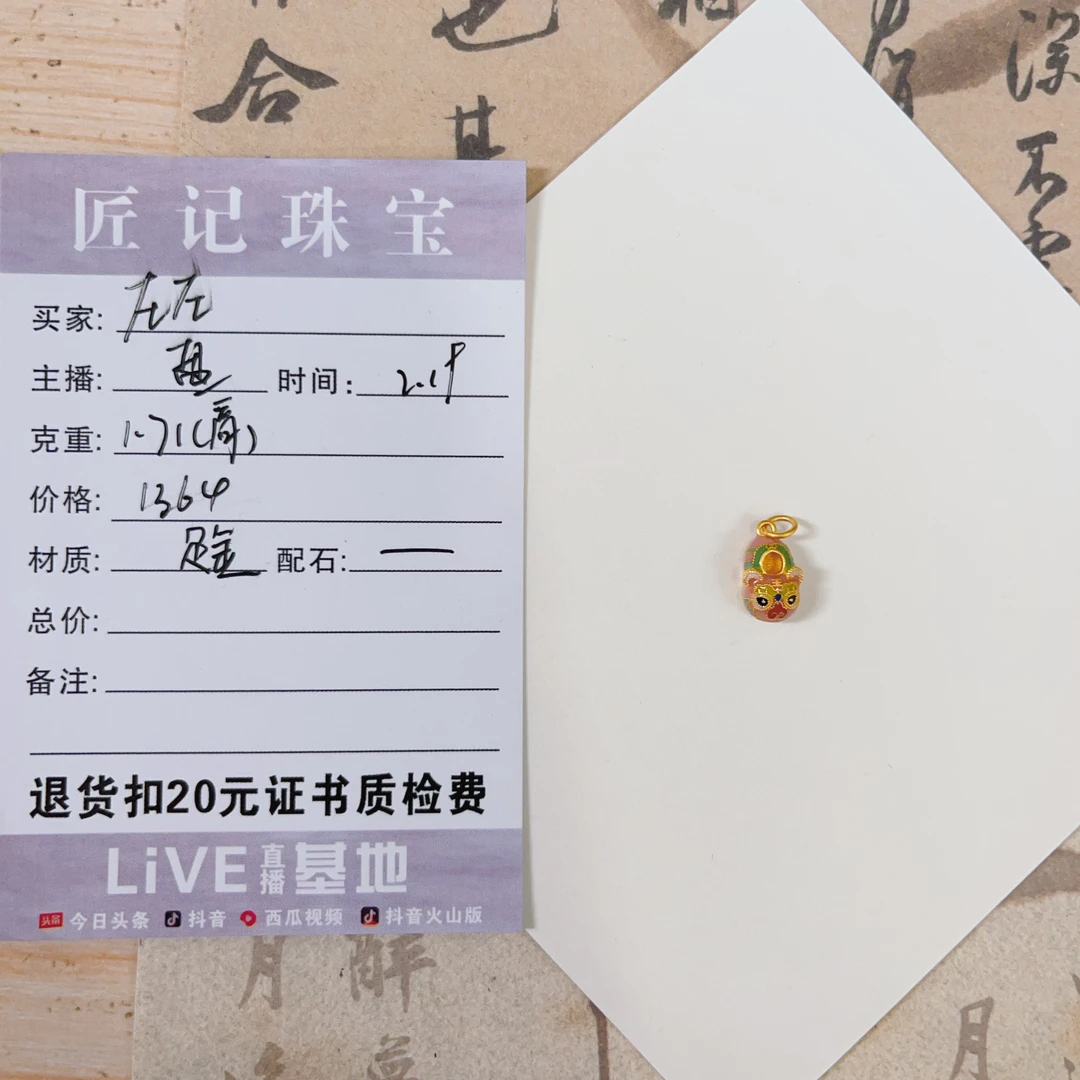 合
也
其
深
不
匠记珠宝
买家: 左左
主播: 时间: 2.19
克重: 1.71(
价格: 1364
材质: 足金 配石: —
总价:
备注:
退货扣20元证书质检费
LiVE直播基地
今日头条 抖音 西瓜视频 抖音火山版
月
解
月